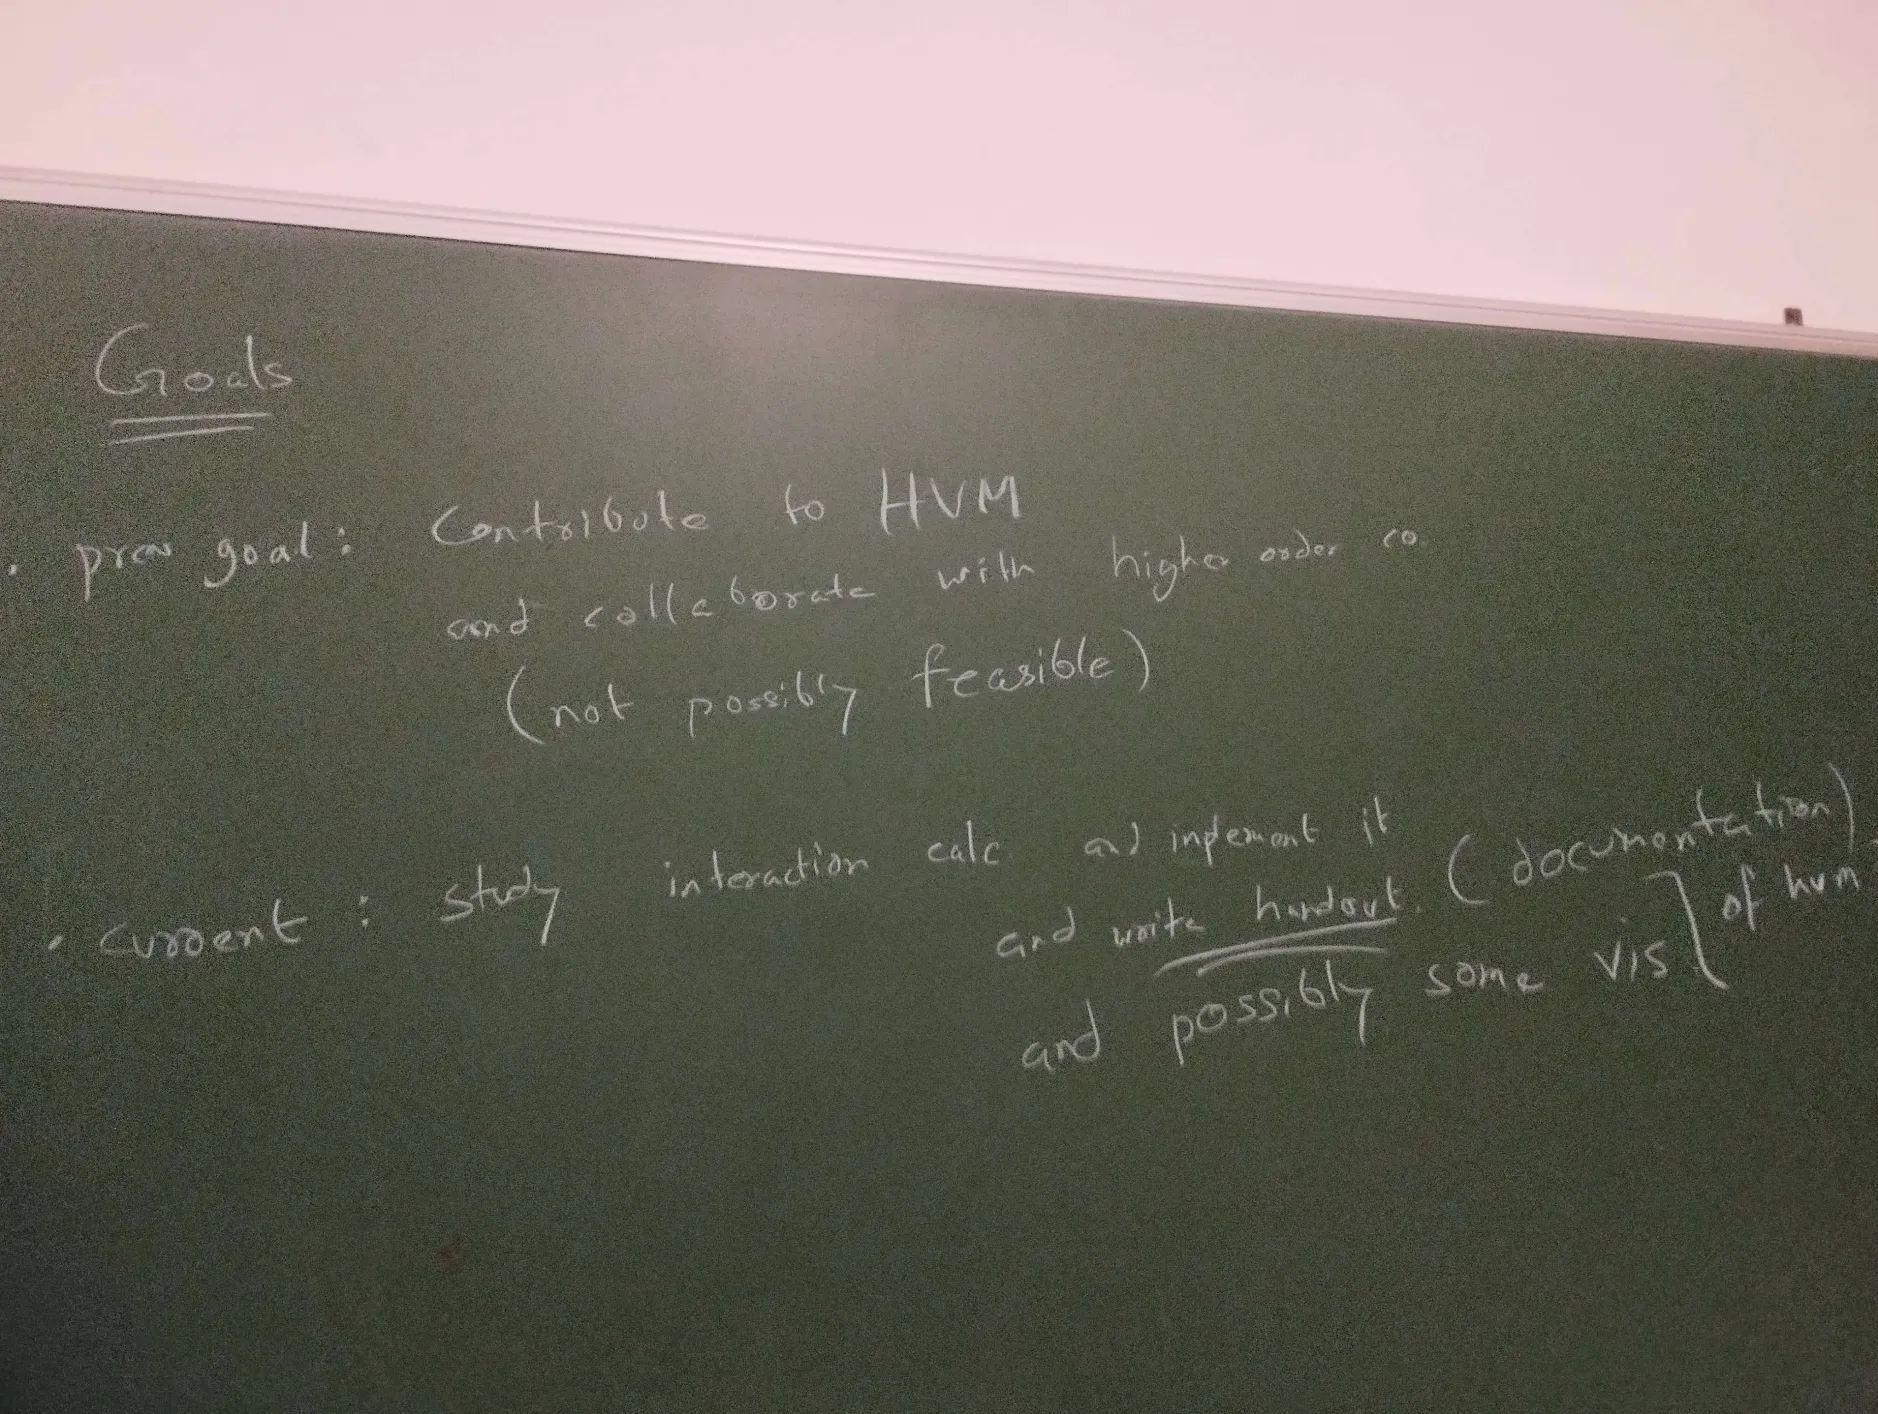 Goals
• prev goal: Contribute to HVM
and collaborate with higher order co.
(not possibly feasible)
• current: study interaction calc and inplement it
and write handout. (documentation)
and possibly some vis } of hvm